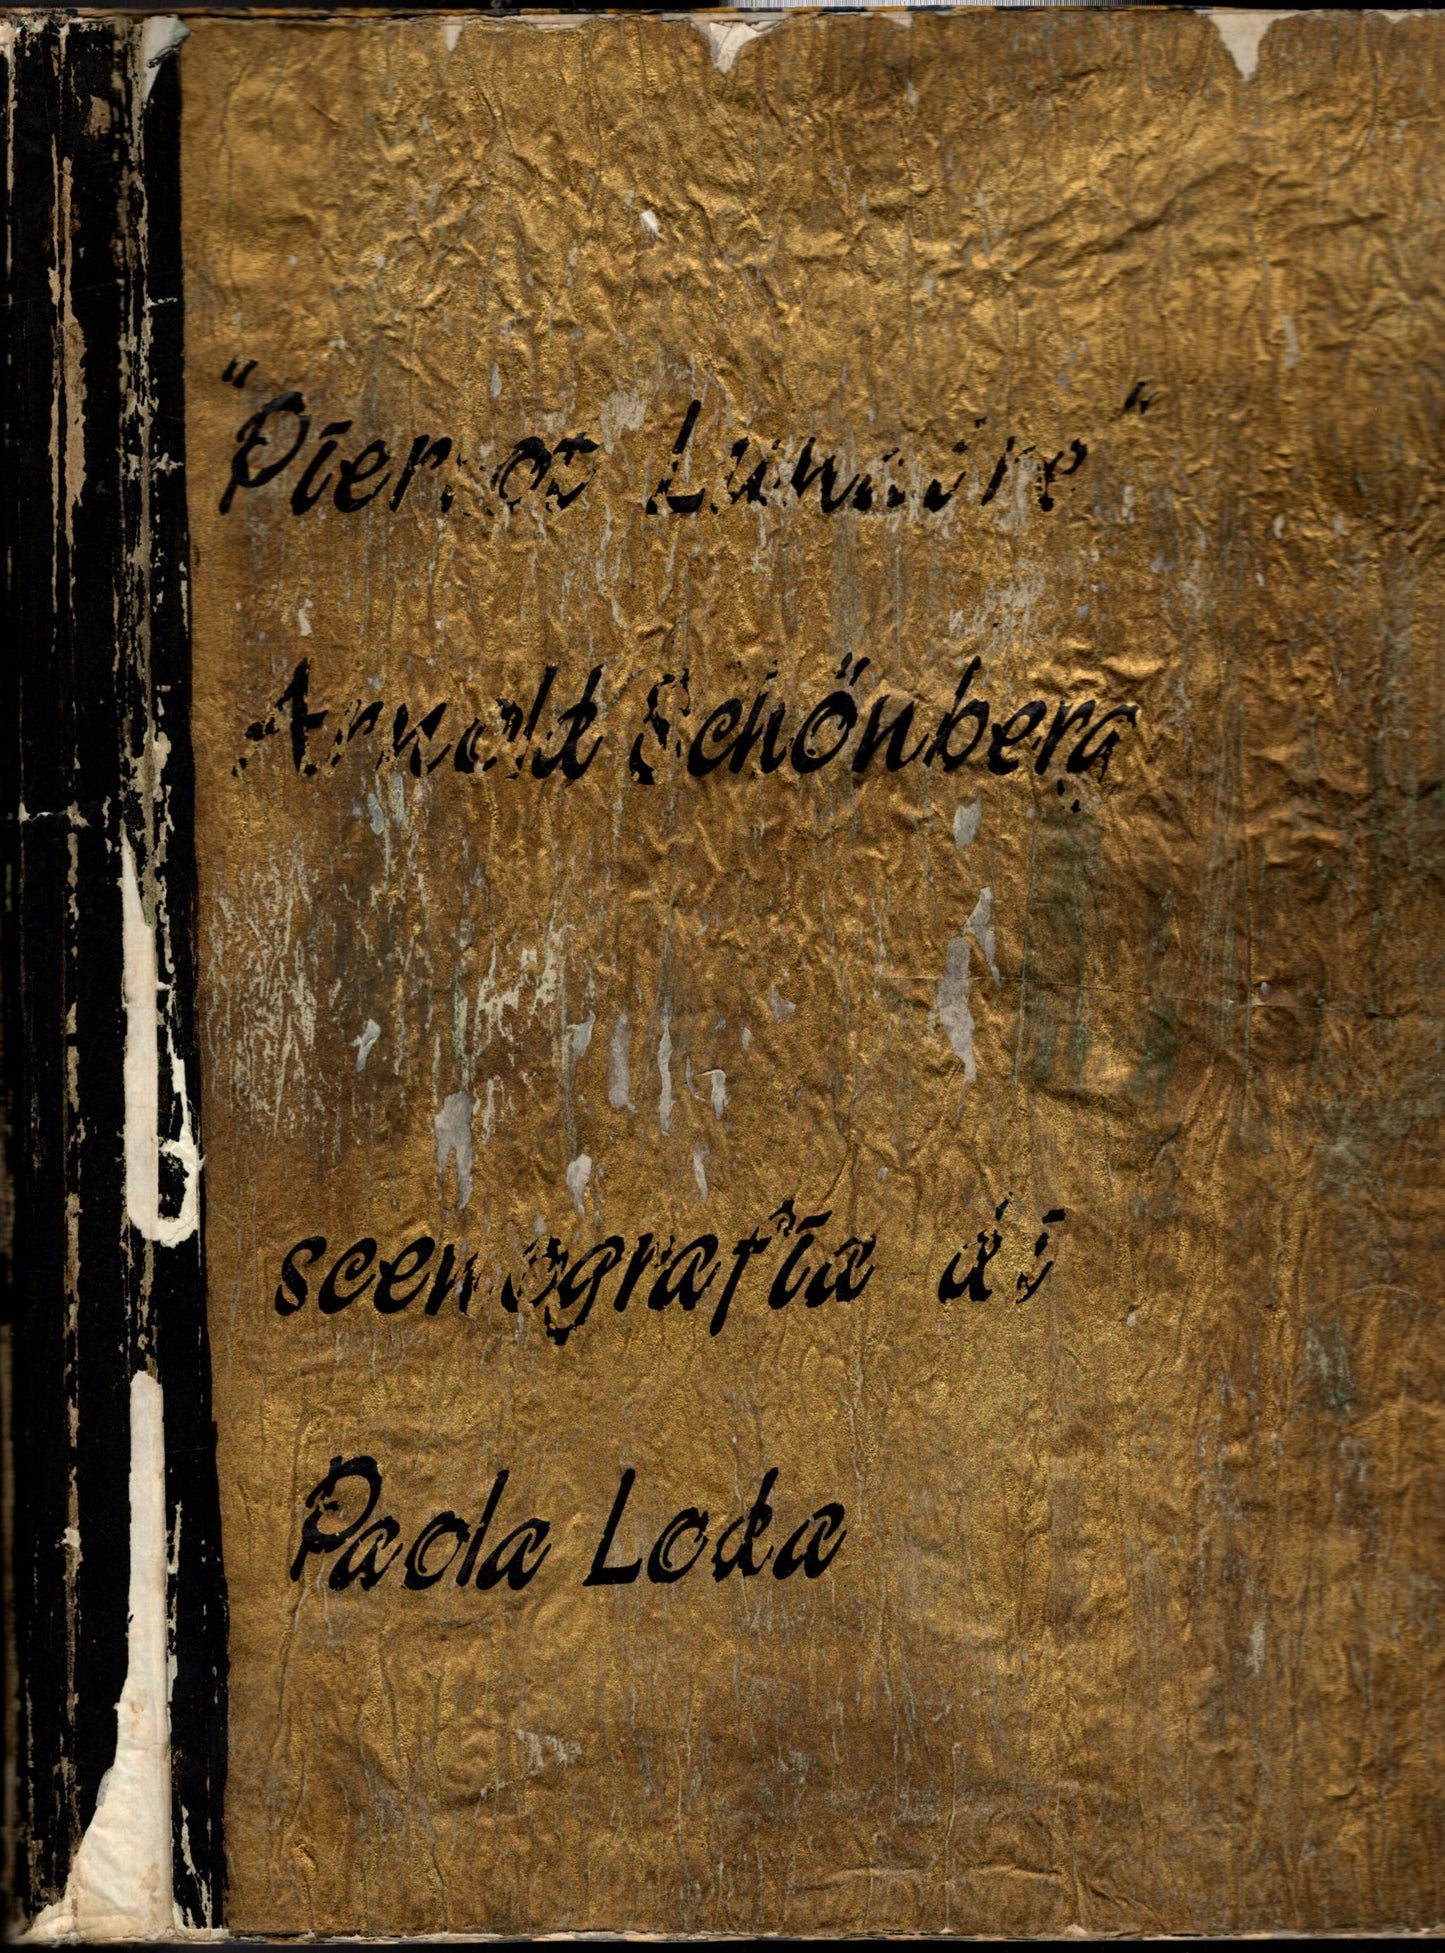 "Pierrot Lunaire"
Arnold Schönberg
scenografia di
Paola Loda